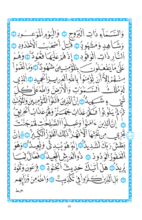 وَالسَّمَاءِ ذَاتِ الْبُرُوجِ وَالْيَوْمِ الْمَوْعُودِ
وَشَاهِدٍ وَمَشْهُودٍ قُتِلَ أَصْحَابُ الْأُخْدُودِ
النَّارِ ذَاتِ الْوَقُودِ إِذْ هُمْ عَلَيْهَا قُعُودٌ وَهُمْ
عَلَىٰ مَا يَفْعَلُونَ بِالْمُؤْمِنِينَ شُهُودٌ وَمَا نَقَمُوا
مِنْهُمْ إِلَّا أَنْ يُؤْمِنُوا بِاللَّهِ الْعَزِيزِ الْحَمِيدِ الَّذِي
لَهُ مُلْكُ السَّمَوَاتِ وَالْأَرْضِ وَاللَّهُ عَلَىٰ كُلِّ
شَيْءٍ شَهِيدٌ إِنَّ الَّذِينَ فَتَنُوا الْمُؤْمِنِينَ وَالْمُؤْمِنَاتِ
ثُمَّ لَمْ يَتُوبُوا فَلَهُمْ عَذَابُ جَهَنَّمَ وَلَهُمْ عَذَابُ الْحَرِيقِ
إِنَّ الَّذِينَ آمَنُوا وَعَمِلُوا الصَّالِحَاتِ لَهُمْ جَنَّاتٌ
تَجْرِي مِنْ تَحْتِهَا الْأَنْهَارُ ذَٰلِكَ الْفَوْزُ الْكَبِيرُ إِنَّ
بَطْشَ رَبِّكَ لَشَدِيدٌ إِنَّهُ هُوَ يُبْدِئُ وَيُعِيدُ وَهُوَ
الْغَفُورُ الْوَدُودُ ذُو الْعَرْشِ الْمَجِيدُ فَعَّالٌ لِمَا
يُرِيدُ هَلْ أَتَاكَ حَدِيثُ الْجُنُودِ فِرْعَوْنَ وَثَمُودَ
بَلِ الَّذِينَ كَفَرُوا فِي تَكْذِيبٍ وَاللَّهُ مِنْ وَرَائِهِمْ